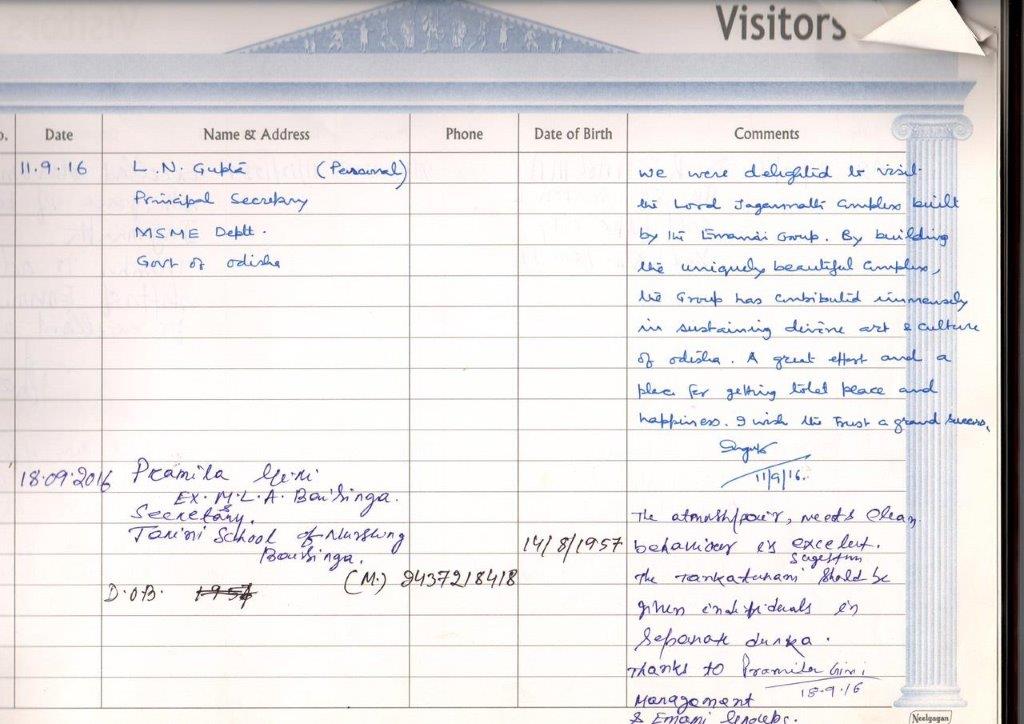 Visitors
Date Name & Address Phone Date of Birth Comments
11.9.16 L.N. Gupta (Personal) We were delighted to visit
Principal Secretary the Lord Jagannath Complex built
MSME Deptt. by the Emami Group. By building
Govt of Odisha the uniquely beautiful Complex,
the Group has contributed immensely
in sustaining divine art & culture
of Odisha. A great effort and a
place for getting total peace and
happiness. I wish the Trust a grand success.
11/9/16.
18.09.2016 Pramila Giri
EX. M.L.A. Baisinga.
Secretary.
Tarini School of Nursuing
Baisinga.
(M.) 9437218418
D.O.B. 1957
14/8/1957
The
behaviour is excelent.
Sugestion
The should be
given individuals in
Separate
Thanks to Pramila Giri
18-9-16
Management
& Emami
Neelgagan